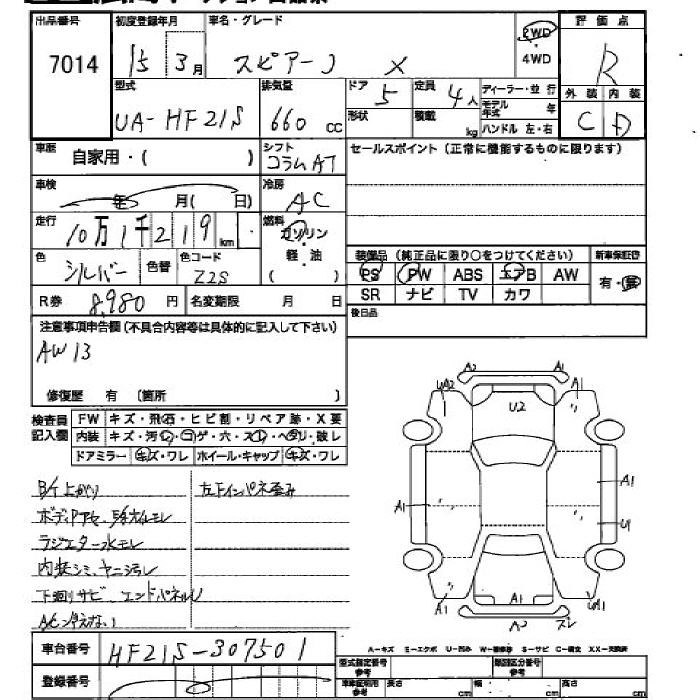 出品番号 初度登録年月 車名・グレード 評価点
7014 15 3月 スピアーノ X 2WD 4WD R
型式 排気量 ドア 定員 ディーラー・並 行 外装 内装
UA-HF21S 660 cc 5 4人 モデル年式 年 C D
形状 積載 kg ハンドル 左・右
車歴 自家用・( ) シフト コラムAT セールスポイント(正常に機能するものに限ります)
車検 年 月( 日) 冷房 AC
走行 10万1千219km 燃料 ガソリン 軽・油 ( )
色 シルバー 色替 色コード Z2S
装備品(純正品に限り○をつけてください) 新車保証書
PS PW ABS エアB AW 有・無
SR ナビ TV カワ
R券 8,980円 名変期限 月 日
後日品
注意事項申告欄(不具合内容等は具体的に記入して下さい)
AW13
修復歴 有 (箇所 )
検査員記入欄 FW キズ・飛石・ヒビ割・リペア跡・X要
内装 キズ・汚レ・コゲ・穴・スレ・ヘタリ・破レ
ドアミラー キズ・ワレ ホイール・キャップ キズ・ワレ
左インパネ歪み
ラジエター水モレ
内装シミ、ヤニ汚レ
下廻リサビ、エンドパネルU
A2 A1
UA2 U2 A1
A1 A1
U1
A1 A1 UA1
A2 スレ
A-キズ E-エクボ U-凹み W-補修跡 S-サビ C-腐食 XX-交換済
車台番号 HF21S-307501
登録番号
型式指定番号 参考 類別区分番号 参考
車体証明用 参考 長さ cm 幅 cm 高さ cm